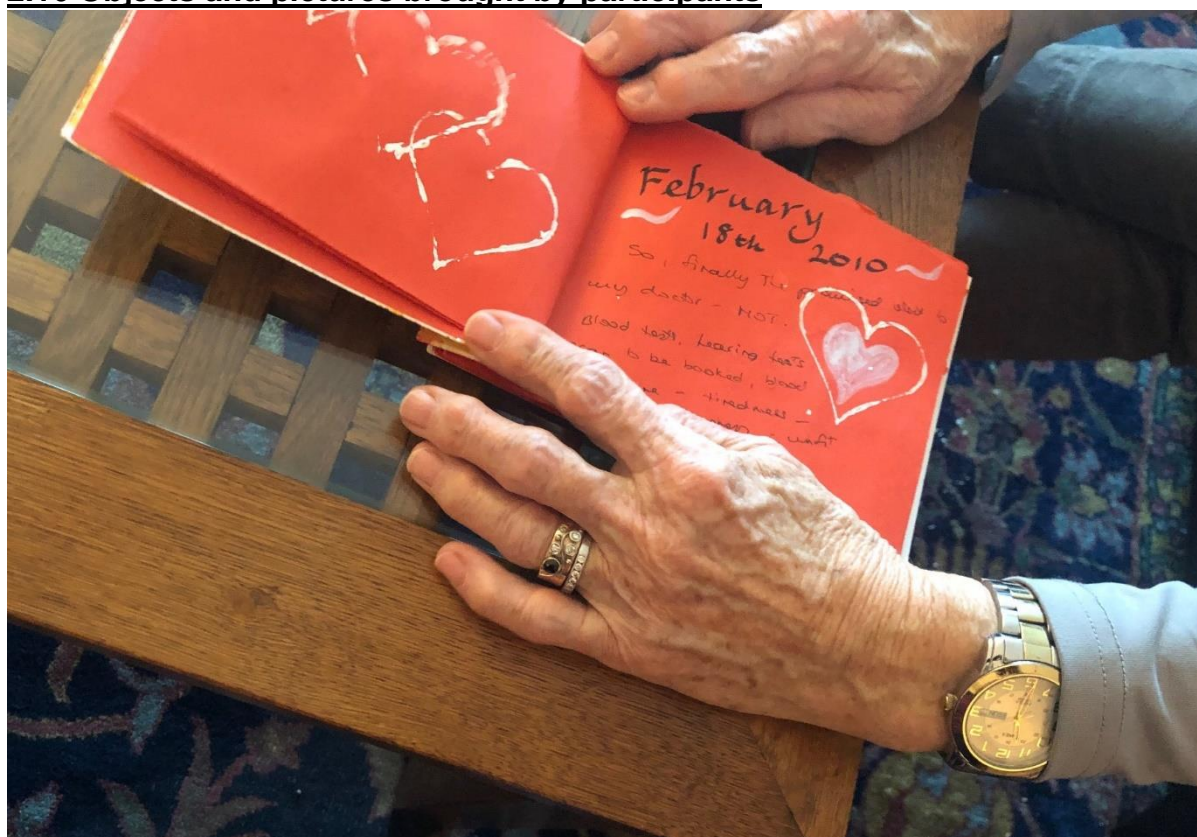 2.10 Objects and pictures brought by participants
February
18th 2010
So, finally the promised visit to
my doctor - NOT.
Blood tests, hearing tests
to be booked, blood
- tiredness -
- unfit